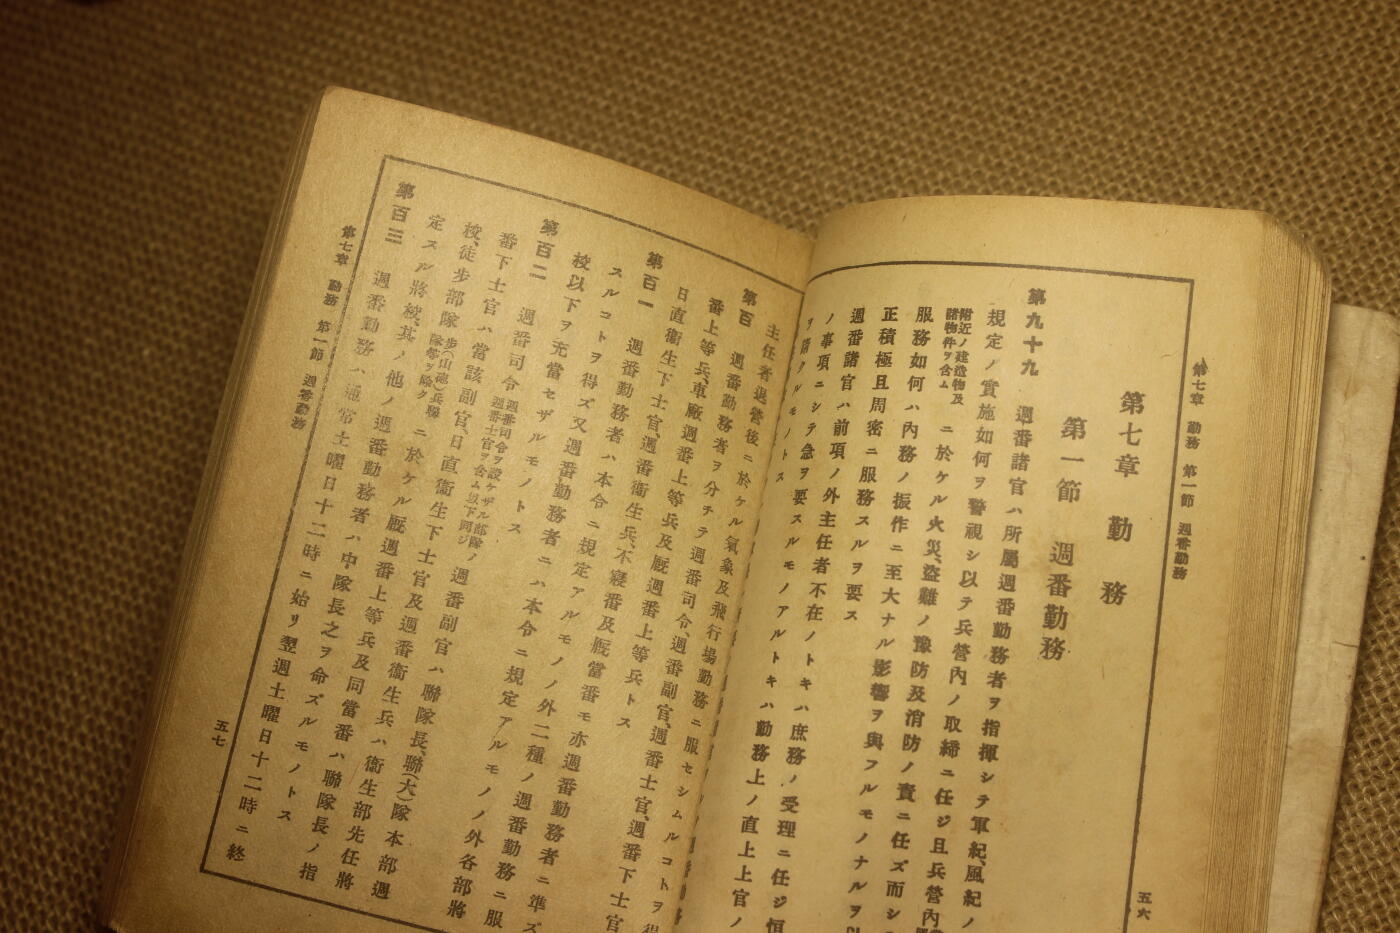 第七章 勤務 第一節 週番勤務
五六
第七章 勤務
第一節 週番勤務
第九十九 週番諸官ハ所屬週番勤務者ヲ指揮シテ軍紀、風紀ノ
規定ノ實施如何ヲ警視シ以テ兵營內ノ取締ニ任ジ且兵營內
附近ノ建造物及
諸物件ヲ含ム
ニ於ケル火災、盜難ノ豫防及消防ノ責ニ任ズ而シ
服務如何ハ內務ノ振作ニ至大ナル影響ヲ與フルモノナルヲ以
正積極且周密ニ服務スルヲ要ス
週番諸官ハ前項ノ外主任者不在ノトキハ庶務ノ受理ニ任ジ恒
ノ事項ニシテ急ヲ要スルモノアルトキハ勤務上ノ直上上官ノ
ヲ請クルモノトス
主任者退營後ニ於ケル氣象及飛行場勤務ニ服セシムルコトヲ得
第百 週番勤務者ヲ分チテ週番司令、週番副官、週番士官、週番下士官
番上等兵、車廠週番上等兵及厩週番上等兵トス
日直衞生下士官、週番衞生兵、不寢番及厩當番モ亦週番勤務者ニ準ズ
第百一 週番勤務者ハ本令ニ規定アルモノノ外二種ノ週番勤務ニ服
スルコトヲ得ズ又週番勤務者ニハ本令ニ規定アルモノノ外各部將
校以下ヲ充當セザルモノトス
第百二 週番司令
週番司令ヲ設ケザル部隊ノ
週番士官ヲ含ム以下同ジ
週番副官ハ聯隊長、聯(大)隊本部週
番下士官ハ當該副官、日直衞生下士官及週番衞生兵ハ衞生部先任將
校、徒步部隊
步(山砲)兵聯
隊等ヲ除ク
ニ於ケル厩週番上等兵及同當番ハ聯隊長ノ指
定スル將校、其ノ他ノ週番勤務者ハ中隊長之ヲ命ズルモノトス
第百三 週番勤務ハ通常土曜日十二時ニ始リ翌週土曜日十二時ニ終
第七章 勤務 第一節 週番勤務
五七